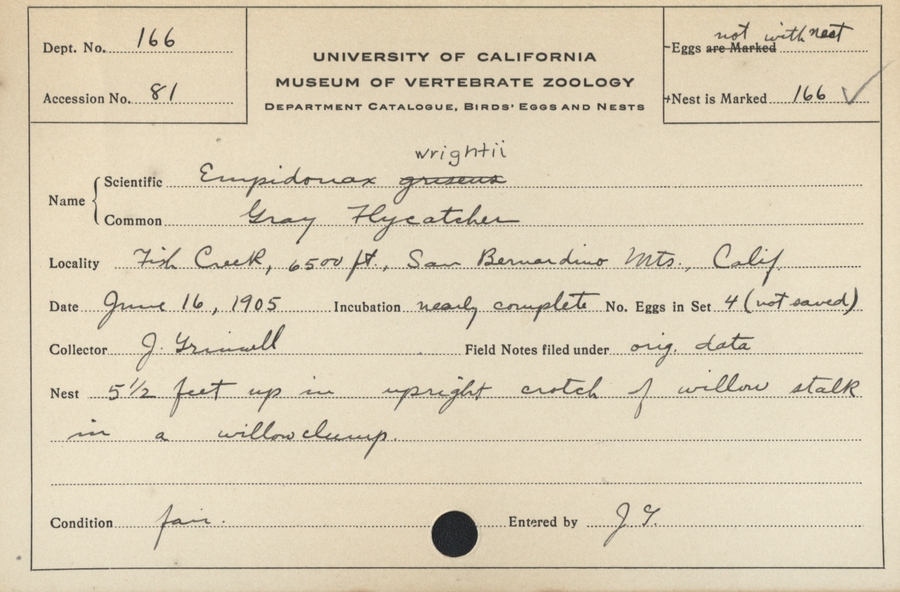 Dept. No. 166
Accession No. 81
UNIVERSITY OF CALIFORNIA
MUSEUM OF VERTEBRATE ZOOLOGY
DEPARTMENT CATALOGUE, BIRDS' EGGS AND NESTS
not with nest
Eggs are Marked
Nest is Marked 166 ✓
wrightii
Name { Scientific Empidonax griseus
Common Gray Flycatcher
Locality Fish Creek, 6500 ft., San Bernardino Mts., Calif.
Date June 16, 1905 Incubation nearly complete No. Eggs in Set 4 (not saved)
Collector J. Grinnell Field Notes filed under orig. data
Nest 5 1/2 feet up in upright crotch of willow stalk
in a willow clump.
Condition fair. Entered by J. G.